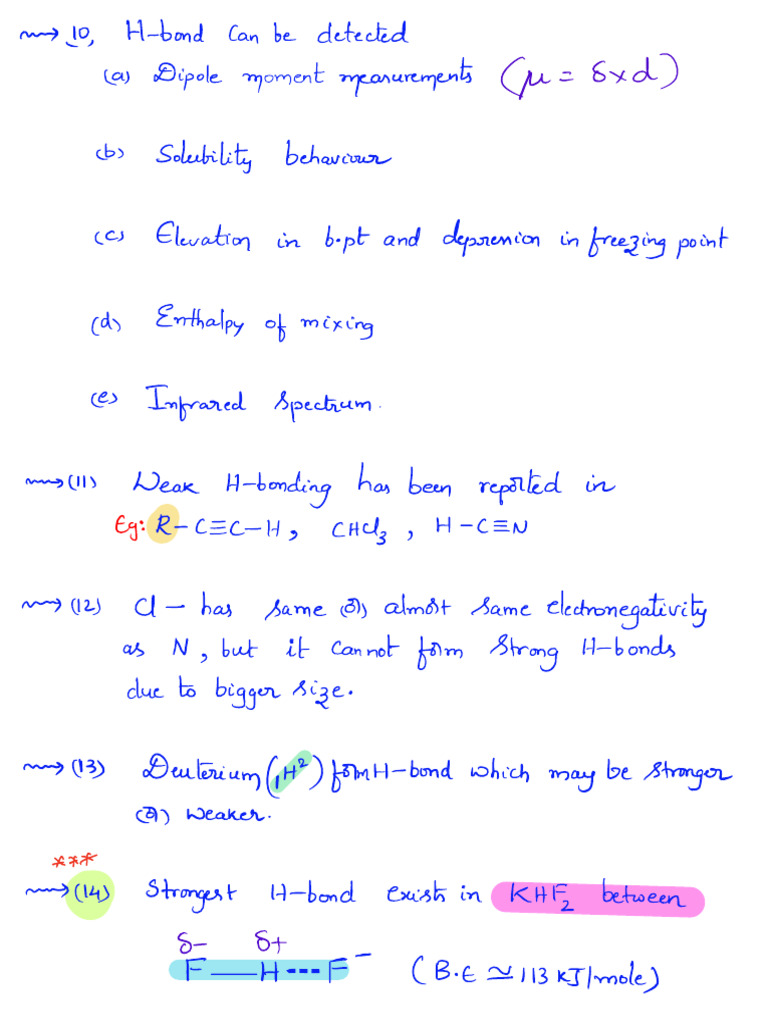 10, H-bond can be detected
(a) Dipole moment measurements (μ = δ×d)
(b) Solubility behaviour
(c) Elevation in b.pt and depression in freezing point
(d) Enthalpy of mixing
(e) Infrared spectrum.
(11) Weak H-bonding has been reported in
Eg: R-C≡C-H, CHCl₃, H-C≡N
(12) Cl - has same (or) almost same electronegativity
as N, but it cannot form strong H-bonds
due to bigger size.
(13) Deuterium (₁H²) form H-bond which may be stronger
(or) weaker.
***
(14) Strongest H-bond exists in KHF₂ between
δ- δ+
F—H---F⁻ (B.E ≃ 113 KJ/mole)